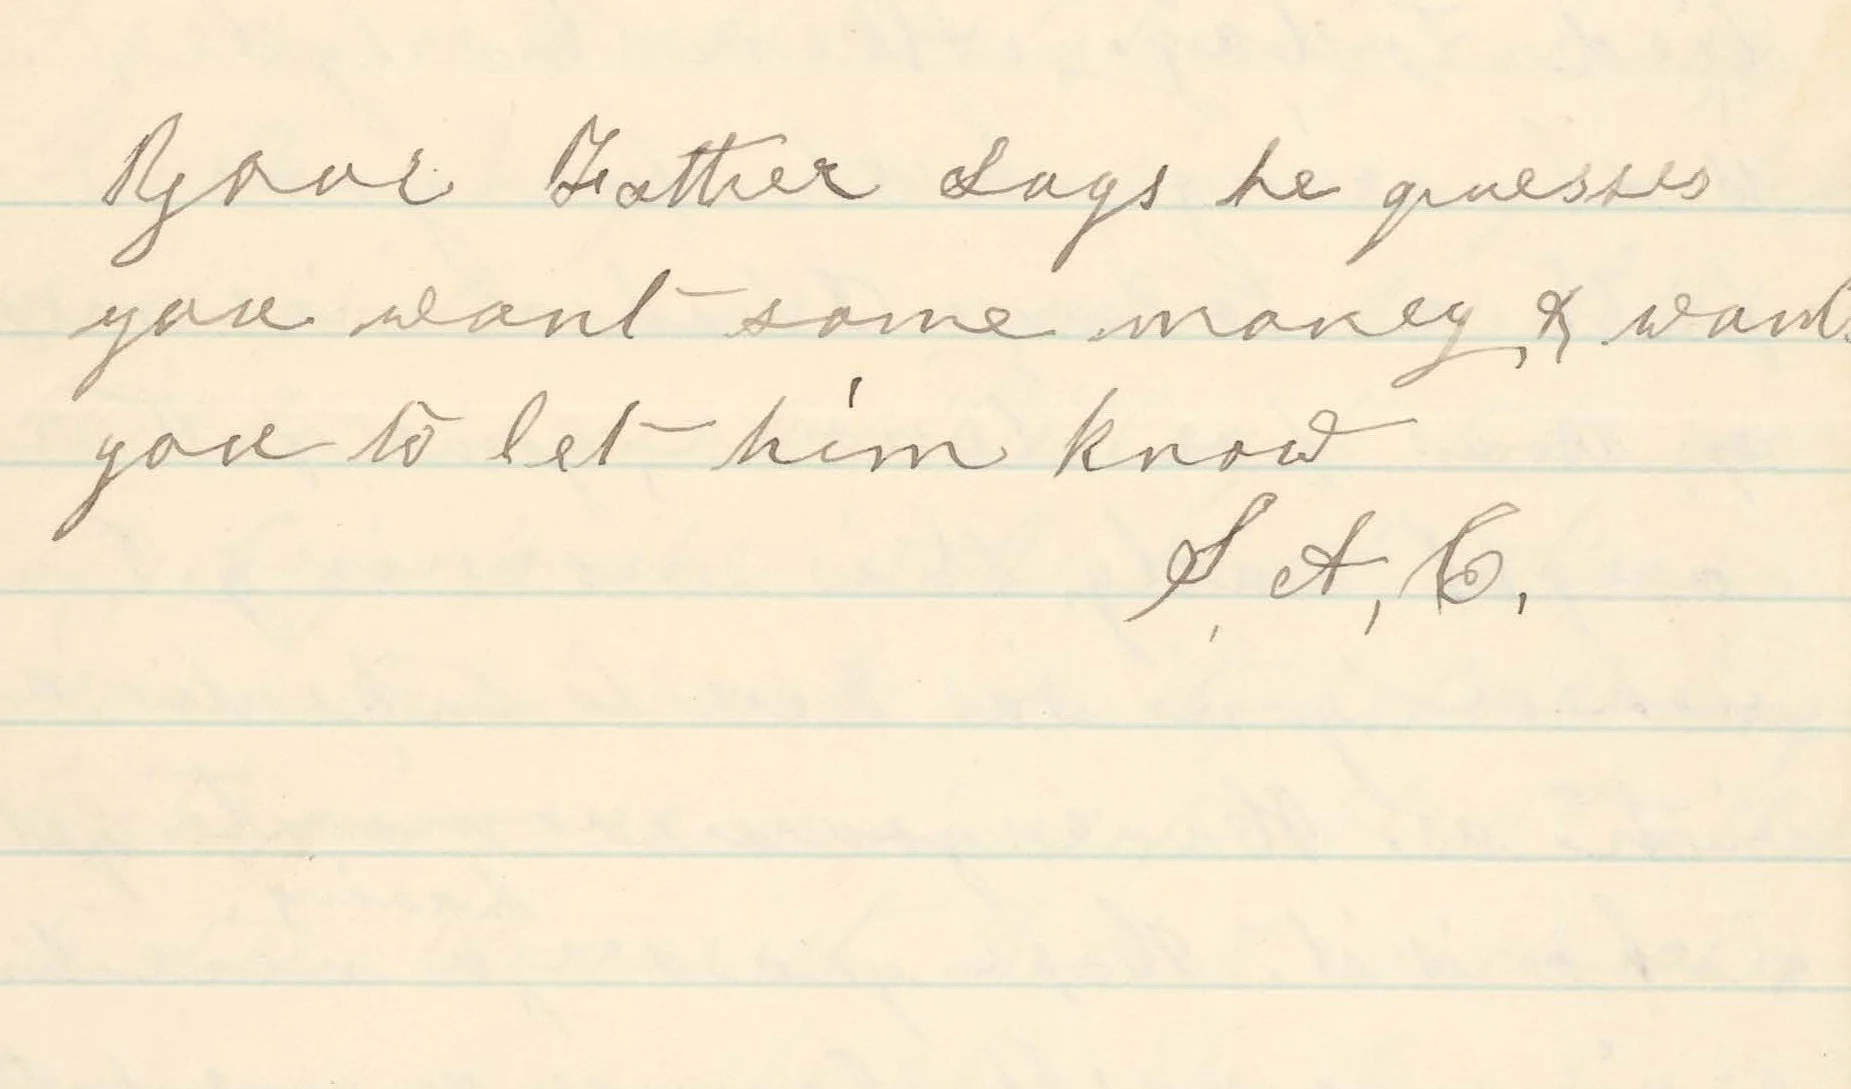 Your Father Says he guesses
you want some money, & wants
you to let him know
S. A. C.